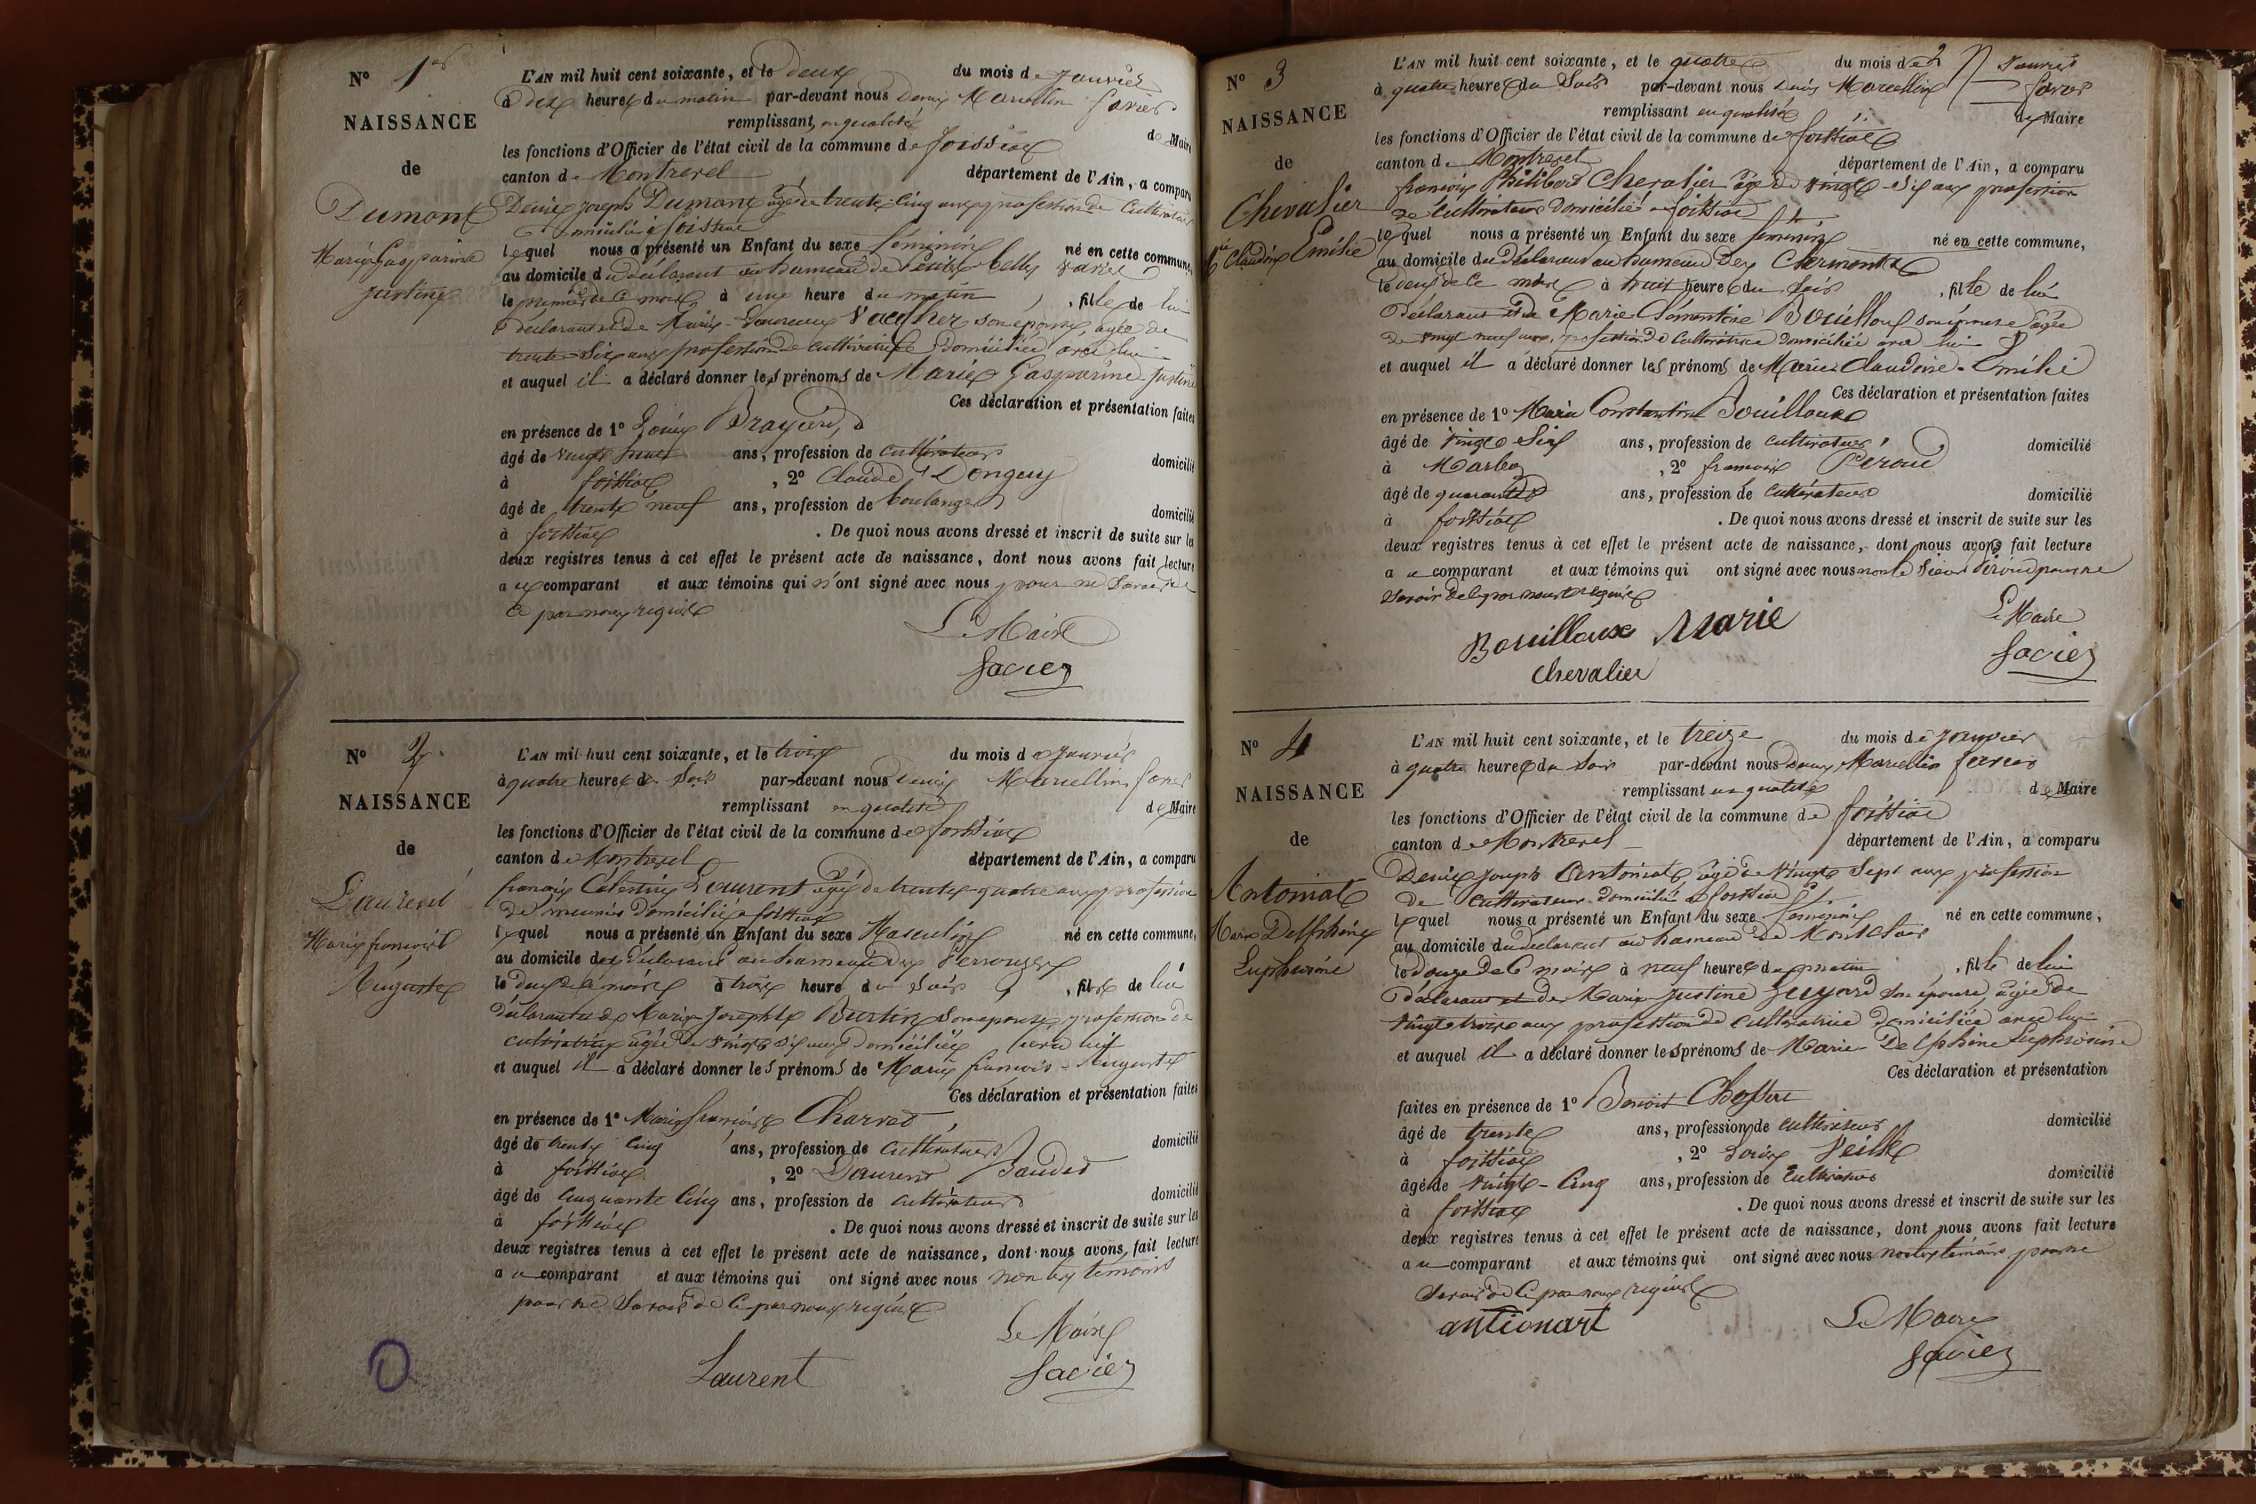 N° 1er
NAISSANCE
de
Dumont
Marie Gasparine
Justine
L'AN mil huit cent soixante, et le deux du mois de Janvier
à dix heures du matin par-devant nous Denis Marcellin
remplissant en qualité de Maire
les fonctions d'Officier de l'état civil de la commune de foissiat
canton de Montrevel département de l'Ain, a comparu
Denis Joseph Dumont âgé de trente cinq ans profession de Cultivateur
domicilié à foissiat
lequel nous a présenté un Enfant du sexe féminin né en cette commune,
au domicile du déclarant au hameau de
le premier de ce mois à une heure du matin, fille de lui
déclarant et de Marie son épouse, agée de
trente-six ans profession de cultivatrice domiciliée avec lui
et auquel il a déclaré donner les prénoms de Marie Gasparine Justine
Ces déclaration et présentation faites
en présence de 1° Louis
âgé de vingt neuf ans, profession de cultivateur domicilié
à foissiat, 2° Claude Donguy
âgé de trente neuf ans, profession de boulanger domicilié
à foissiat. De quoi nous avons dressé et inscrit de suite sur les
deux registres tenus à cet effet le présent acte de naissance, dont nous avons fait lecture
au comparant et aux témoins qui n'ont signé avec nous pour ne savoir de
ce par nous requis
Le Maire
N° 2.
NAISSANCE
de
Laurent
Marie françois
Auguste
L'AN mil huit cent soixante, et le trois du mois de Janvier
à quatre heures du Soir par-devant nous Denis Marcellin
remplissant en qualité de Maire
les fonctions d'Officier de l'état civil de la commune de foissiat
canton de Montrevel département de l'Ain, a comparu
françois Célestin Laurent âgé de trente-quatre ans profession
de meunier domicilié à foissiat
lequel nous a présenté un Enfant du sexe Masculin né en cette commune,
au domicile du déclarant au hameau des
le deux de ce mois à trois heures du Soir, fils de lui
déclarant et de Marie Josephte son épouse, profession de
cultivatrice âgée de vingt six ans domiciliée avec lui
et auquel il a déclaré donner les prénoms de Marie françois-Auguste
Ces déclaration et présentation faites
en présence de 1° Marie françois Charvet,
âgé de trente cinq ans, profession de cultivateur domicilié
à foissiat, 2° Laurent
âgé de cinquante cinq ans, profession de cultivateur domicilié
à foissiat. De quoi nous avons dressé et inscrit de suite sur les
deux registres tenus à cet effet le présent acte de naissance, dont nous avons fait lecture
au comparant et aux témoins qui ont signé avec nous non les témoins
pour ne Savoir de Ce par nous requis
Le Maire
Laurent
N° 3
NAISSANCE
de
Chevalier
Mie Claudine Emélie
L'AN mil huit cent soixante, et le quatre du mois de Janvier
à quatre heures du Soir par-devant nous Denis Marcellin
remplissant en qualité de Maire
les fonctions d'Officier de l'état civil de la commune de foissiat
canton de Montrevel département de l'Ain, a comparu
françois Philibert Chevalier âgé de vingt-six ans profession
de Cultivateur domicilié à foissiat
lequel nous a présenté un Enfant du sexe féminin né en cette commune,
au domicile du déclarant au hameau des
le deux de ce mois à huit heures du soir, fille de lui
déclarant et de Marie son épouse âgée
de vingt neuf ans, profession de Cultivatrice domiciliée avec lui
et auquel il a déclaré donner les prénoms de Marie-Claudine-Emélie
Ces déclaration et présentation faites
en présence de 1° Marie Constantin Bouilloux
âgé de vingt six ans, profession de cultivateur domicilié
à Marboz, 2° françois Peroud
âgé de quarante ans, profession de cultivateur domicilié
à foissiat. De quoi nous avons dressé et inscrit de suite sur les
deux registres tenus à cet effet le présent acte de naissance, dont nous avons fait lecture
au comparant et aux témoins qui ont signé avec nous non le Sieur Peroud pour ne
savoir de ce par nous requis
Le Maire
Bouilloux Marie
Chevalier
N° 4
NAISSANCE
de
Antoniat
Marie Delphine
Euphrosine
L'AN mil huit cent soixante, et le treize du mois de Janvier
à quatre heures du Soir par-devant nous Denis Marcellin
remplissant en qualité de Maire
les fonctions d'Officier de l'état civil de la commune de foissiat
canton de Montrevel département de l'Ain, a comparu
Denis Joseph Antoniat âgé de Vingt Sept ans profession
de Cultivateur domicilié à foissiat
lequel nous a présenté un Enfant du sexe féminin né en cette commune,
au domicile du déclarant au hameau de
le douze de ce mois à neuf heures du matin, fille de lui
déclarant et de Marie Justine Guyard son épouse, âgée de
vingt trois ans profession de cultivatrice domiciliée avec lui
et auquel il a déclaré donner les prénoms de Marie Delphine Euphrosine
Ces déclaration et présentation
faites en présence de 1° Benoit
âgé de trente ans, profession de cultivateur domicilié
à foissiat, 2° Louis
âgé de vingt-cinq ans, profession de cultivateur domicilié
à foissiat. De quoi nous avons dressé et inscrit de suite sur les
deux registres tenus à cet effet le présent acte de naissance, dont nous avons fait lecture
au comparant et aux témoins qui ont signé avec nous non les témoins pour ne
Savoir de Ce par nous requis
Le Maire
antionart